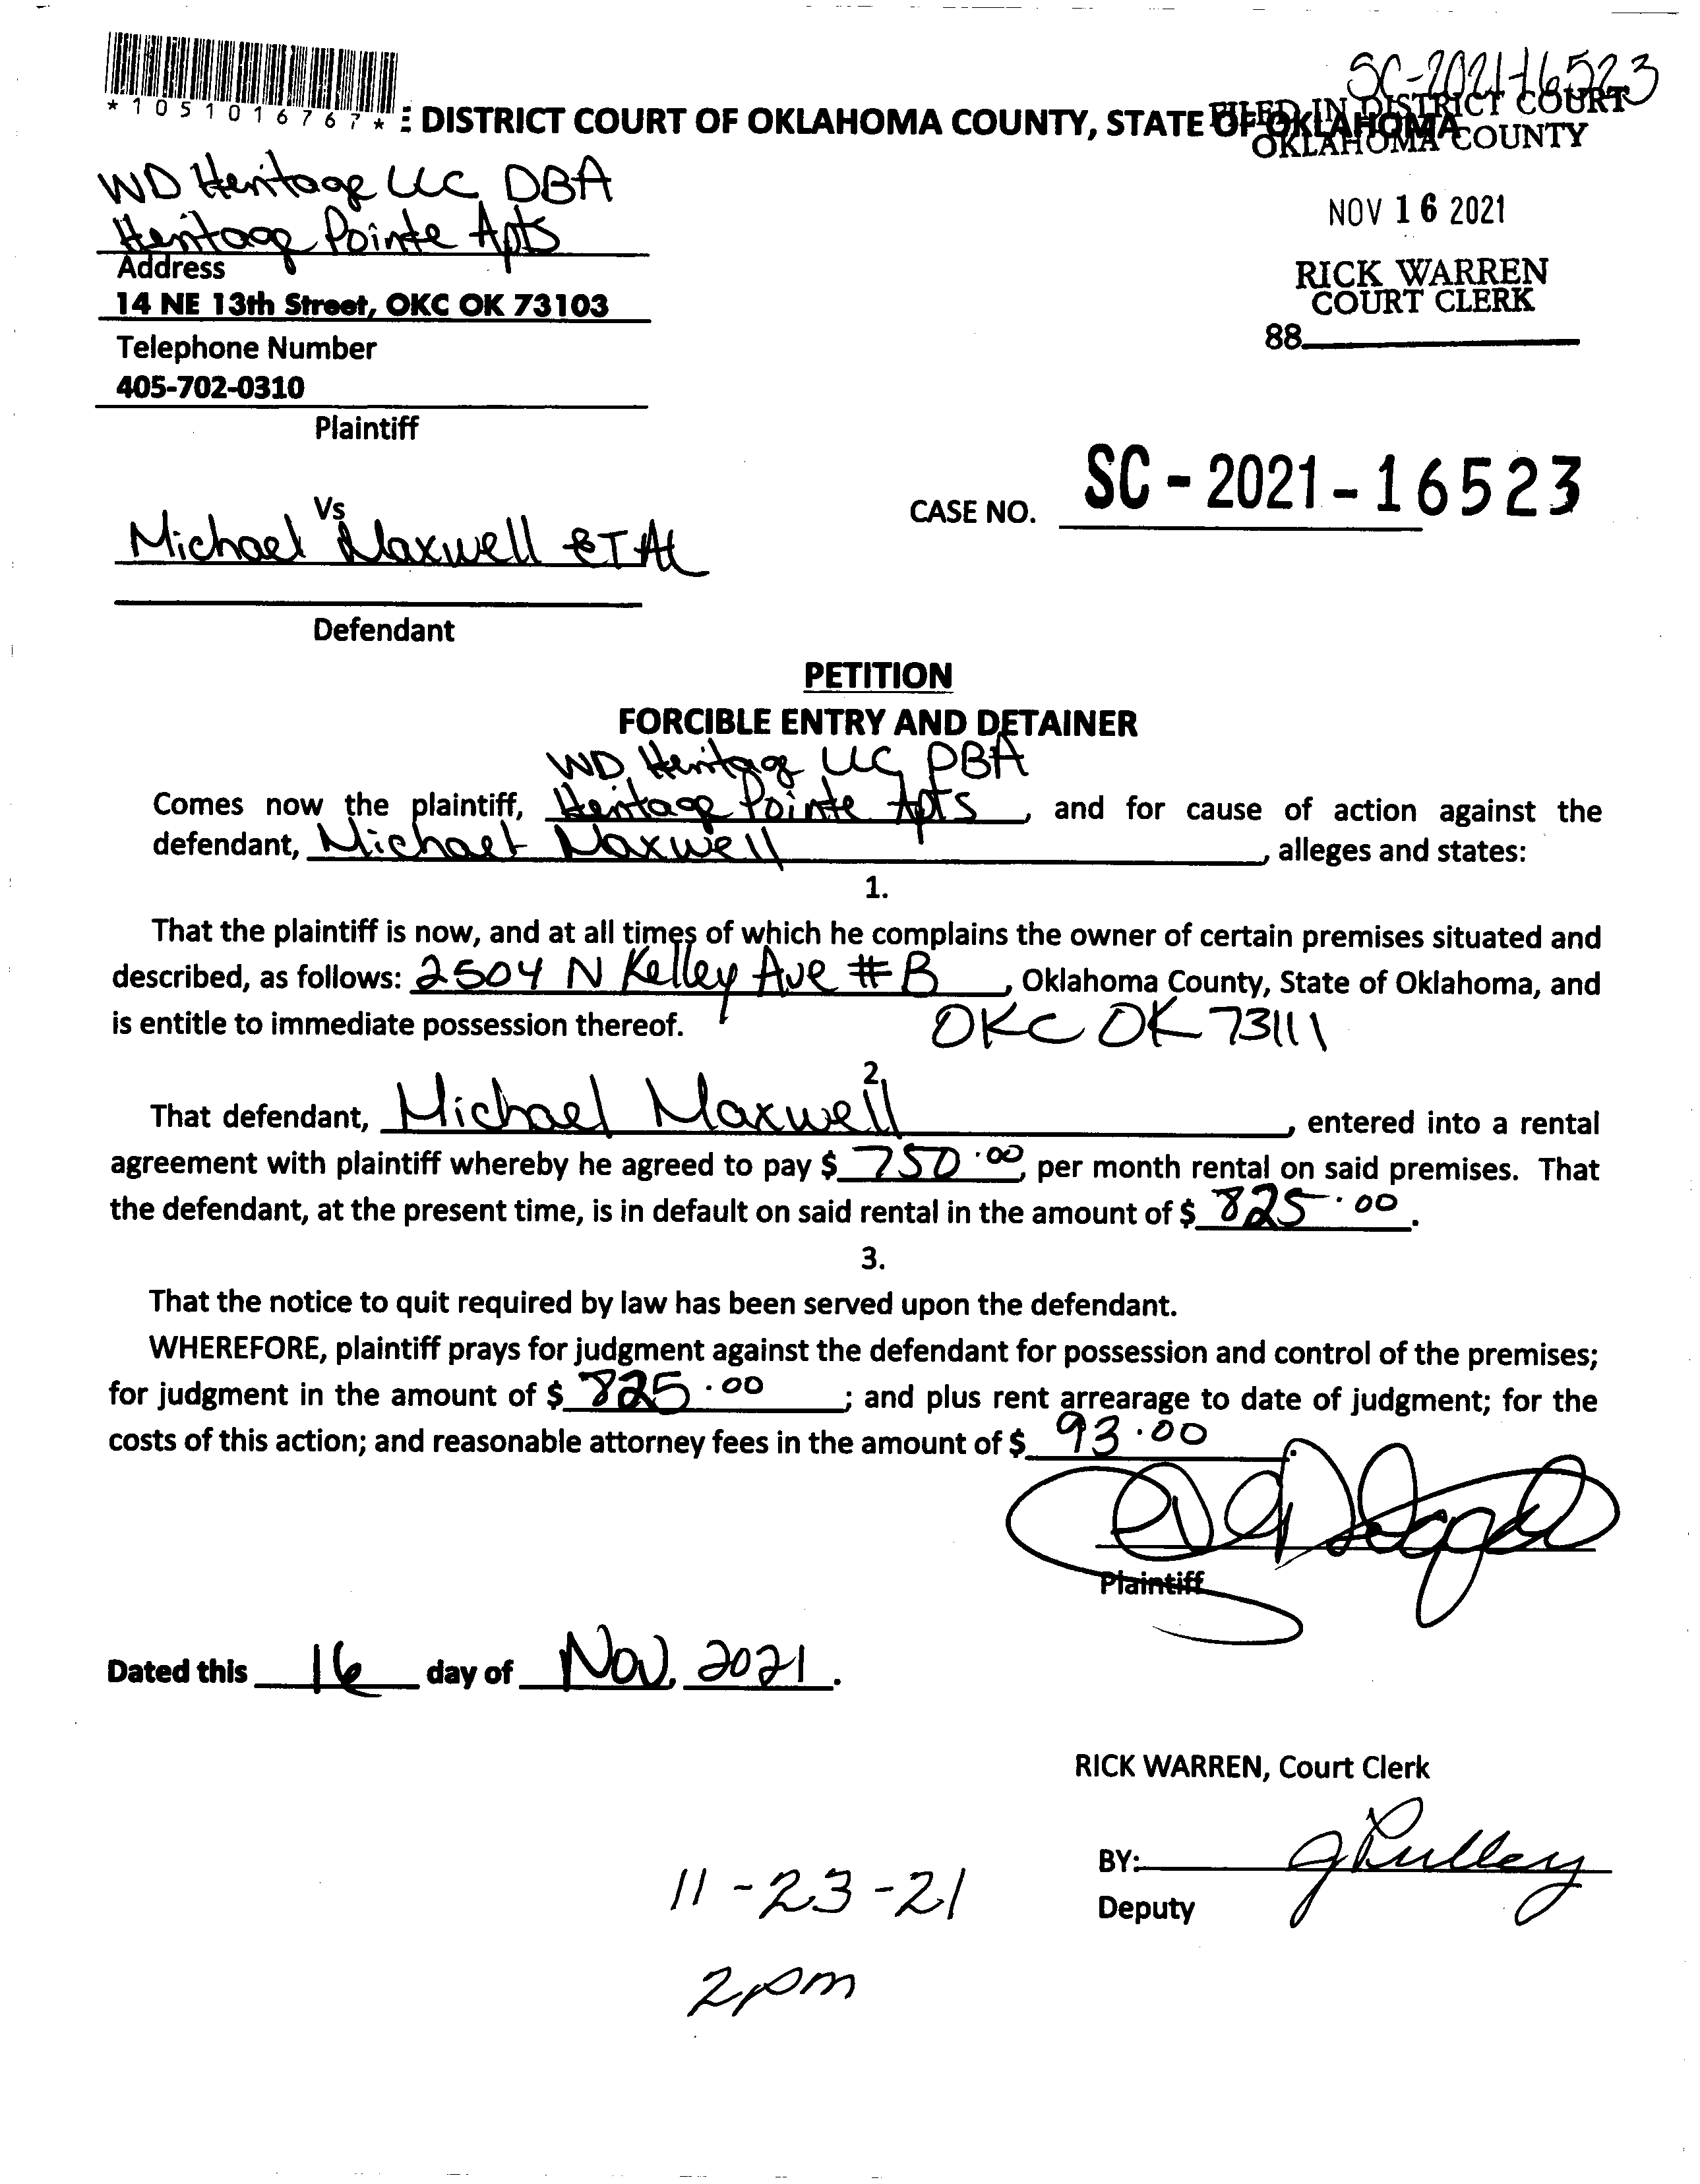 SC-2021-16523
*1051016767*
E DISTRICT COURT OF OKLAHOMA COUNTY, STATE OF OKLAHOMA
FILED IN DISTRICT COURT
OKLAHOMA COUNTY
WD Heritage LLC DBA
Heritage Pointe Apts
NOV 16 2021
Address
14 NE 13th Street, OKC OK 73103
RICK WARREN
COURT CLERK
88
Telephone Number
405-702-0310
Plaintiff
Vs
CASE NO. SC-2021-16523
Michael Maxwell ET AL
Defendant
PETITION
FORCIBLE ENTRY AND DETAINER
WD Heritage LLC DBA
Comes now the plaintiff, Heritage Pointe Apts, and for cause of action against the
defendant, Michael Maxwell, alleges and states:
1.
That the plaintiff is now, and at all times of which he complains the owner of certain premises situated and
described, as follows: 2504 N Kelley Ave #B, Oklahoma County, State of Oklahoma, and
is entitle to immediate possession thereof. OKC OK 73111
2.
That defendant, Michael Maxwell, entered into a rental
agreement with plaintiff whereby he agreed to pay $ 750.00, per month rental on said premises. That
the defendant, at the present time, is in default on said rental in the amount of $ 825.00.
3.
That the notice to quit required by law has been served upon the defendant.
WHEREFORE, plaintiff prays for judgment against the defendant for possession and control of the premises;
for judgment in the amount of $ 825.00; and plus rent arrearage to date of judgment; for the
costs of this action; and reasonable attorney fees in the amount of $ 93.00.
Plaintiff
Dated this 16 day of Nov. 2021.
RICK WARREN, Court Clerk
BY: J Pulley
Deputy
11-23-21
2pm